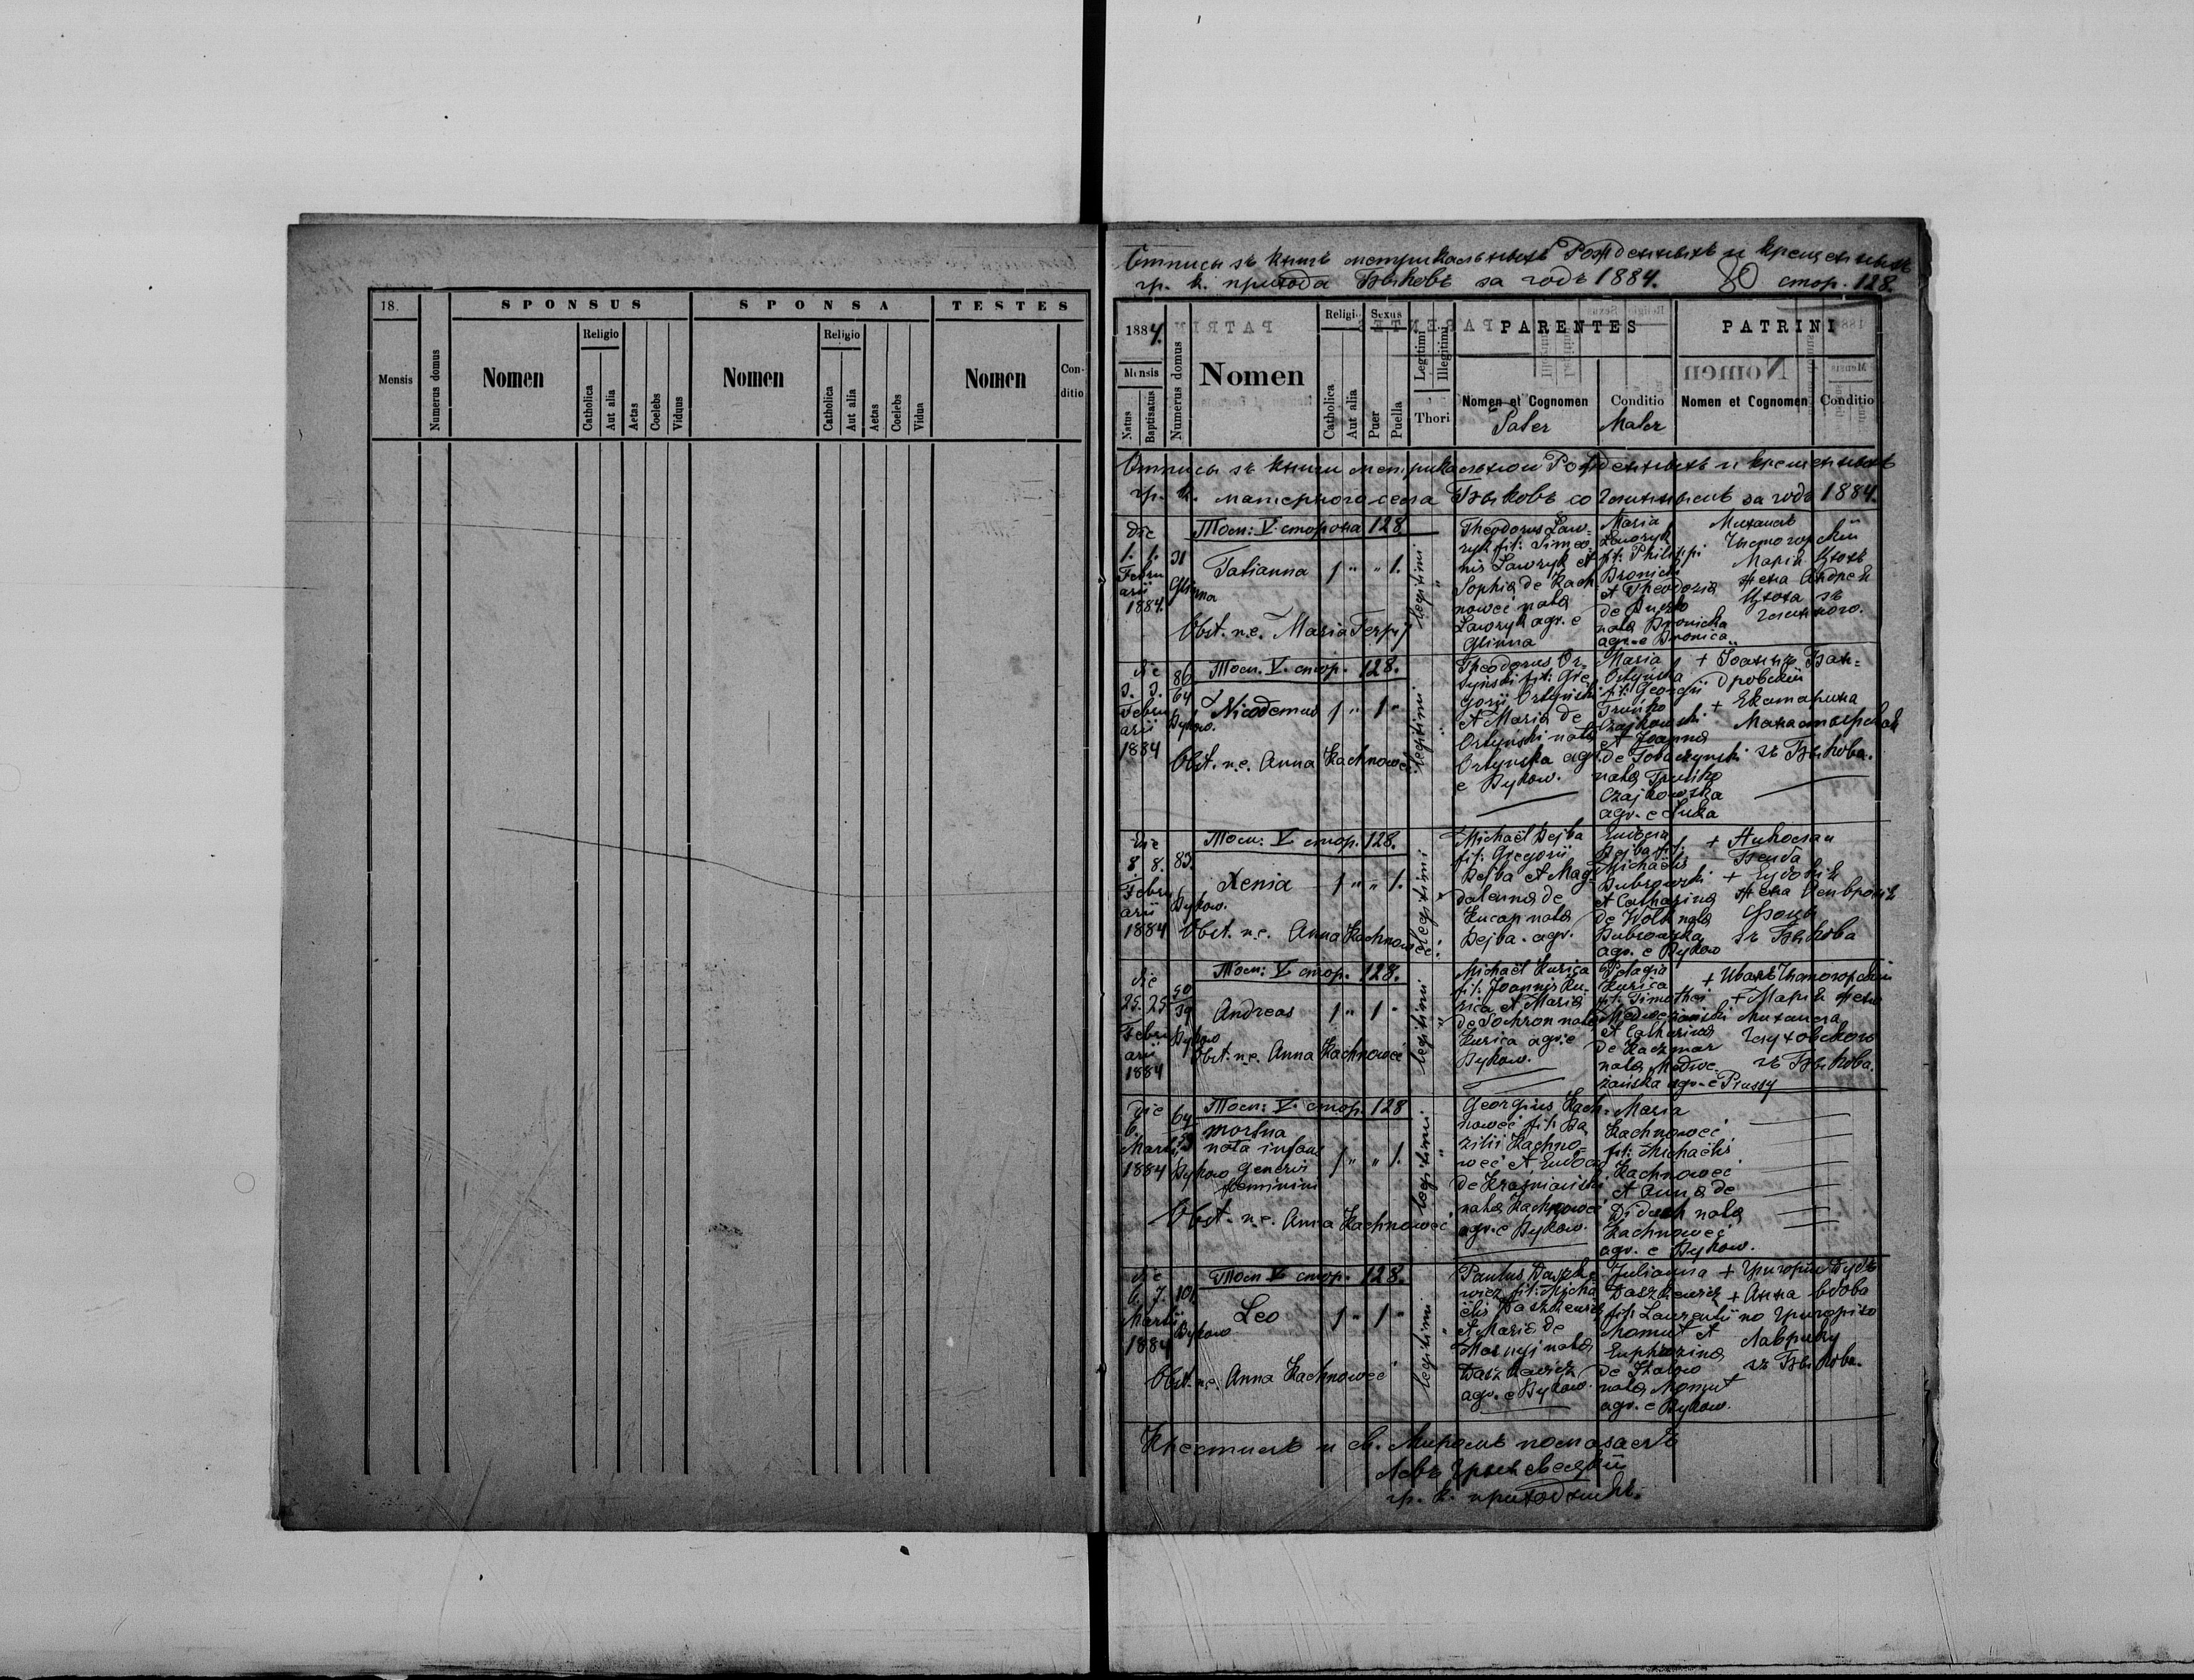 18.
SPONSUS
SPONSA
TESTES
Mensis
Numerus domus
Nomen
Religio
Catholica
Aut alia
Aetas
Coelebs
Viduus
Nomen
Religio
Catholica
Aut alia
Aetas
Coelebs
Vidua
Nomen
Conditio
Отписы зъ книгъ метрикальныхъ Рожденныхъ и крещенныхъ
гр. к. прихода Быковъ за годъ 1884. 80 стор. 128.
1884.
Mensis
Natus
Baptisatus
Numerus domus
Nomen
Religi.
Catholica
Aut alia
Sexus
Puer
Puella
Legitimi
Illegitimi
Thori
PARENTES
Nomen et Cognomen
Conditio
Pater
Mater
PATRINI
Nomen et Cognomen
Conditio
Отписы зъ книги метрикальнои Рожденныхъ и крещенныхъ
гр. к. матернога села Быковъ со Глинымъ за годъ 1884.
die
1. 1.
Febru
arii
1884.
31
Glinna
Том: V. сторона 128
Tatianna 1 " " 1.
Obst. n.e. Maria
legitimi
Theodorus Law-
ryk fil: Simeo-
nis Lawryk et
Sophia de Kach
nowec nata
Lawryk agr. e
Glinna
Maria
Lawryk
fil: Philippi
Bronicki
et Theodozia
de
nata Bronicka
agr. e Bronica
Михаилъ
Чыстогорскій
Марія
жена Андрея
зъ
die
3. 3.
Febru
arii
1884
86
64
Bykow.
Том. V. стор. 128.
Nicodemus 1 " 1 "
Obst. n.e. Anna Kachnowec
legitimi
Theodorus Or-
tyński fil: Gre
gorii Ortyński
et Maria de
Ortyński nata
Ortynska agr.
e Bykow.
Maria
Ortynska
fil: Georgii
Czajkowski
et Joanna
nata
Czajkowska
agr. e Łuka
+ Іоаннъ Бан-
дровскій
+ Екатарина
Манастырская
зъ Быкова.
die
8. 8.
Febru
arii
1884
83.
Bykow.
Том: V. стор. 128.
Xenia 1 " " 1.
Obst. n.e. Anna Kachnowec
legitimi
Michaël Dejba
fil: Gregorii
Dejba et Mag-
dalenna de
Kucap nata
Dejba. agr.
Eudocia
Dejba fil:
Michaëlis
Dubrowski
et Catharina
de Wolk nata
Dubrowska
agr. e Bykow
+ Николаи
+ Евдокія
жена
зъ Быкова
die
25. 25
Febru
arii
1884
50
39
Bykow
Том: V. стор. 128.
Andreas 1 " 1 "
Obst. n.e. Anna Kachnowec
legitimi
Michaël Kurica
fil: Joannis Ku-
rica et Maria
de Sochron nata
Kurica agr. e
Bykow.
Pelagia
Kurica
fil: Timothei
et Catharina
de Kaczmar
nata Medwe-
żańska agr. e Prussy
+ Иванъ Чыстогорскій
+ Марія жена
Михаила
зъ Быкова.
die
6.
Martii
1884
64
39
Bykow
Том: V. стор. 128
mortua
nata infans
generis
feminini
1 " " 1.
Obst. n.e. Anna Kachnowec
legitimi
Georgius Kach-
nowec fil: Ba
zilii Kachno-
wec et Eudocia
de
nata Kachnowec
agr. e Bykow.
Maria
Kachnowec
fil: Michaëlis
Kachnowec
et Anna de
Diduch nata
Kachnowec
agr. e Bykow.
die
6. 7.
Martii
1884
101
Bykow
Том V. стор. 128.
Leo 1 " 1 "
Obst. n.e. Anna Kachnowec
legitimi
Paulus Daszke
wicz fil: Micha
ëlis Daszkewicz
et Maria de
nata
Daszkewicz
agr. e Bykow.
Julianna
Daszkewicz
fil: Laurentii
Momut et
Euphrozina
de
nata Momut
agr. e Bykow.
+ Григорій Дудь
+ Анна вдова
по Григорію
Лаврику
зъ Быкова.
Крестилъ и св. Миромъ помазалъ
Левъ
гр. к. приходникъ.